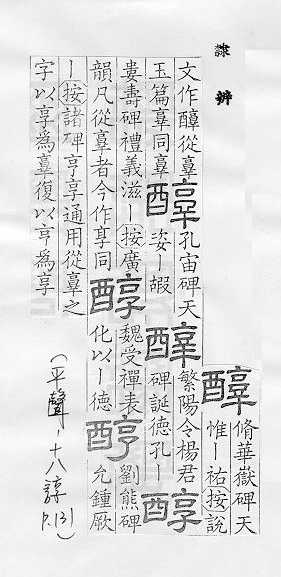 隸辨
醇
脩華嶽碑天
惟ㄧ祐按說
文作𨣌從𦎫
玉篇𦎫同𦎫
醇
孔宙碑天
姿ㄧ嘏
醇
繁陽令楊君
碑誕德孔ㄧ
醇
婁壽碑禮義滋ㄧ按廣
韻凡從𦎫者今作享同
醇
魏受禪表
化以ㄧ德
酻
劉熊碑
允鍾厥
ㄧ按諸碑亨享通用從𦎫之
字以享為𦎫復以亨為享
(平聲-十八諄
P.131)